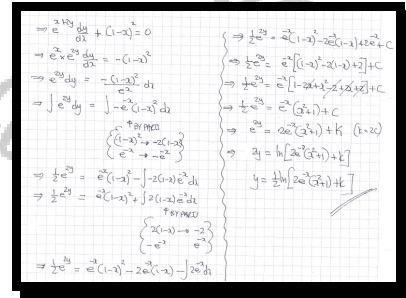 ⇒ e^{x+2y} dy/dx + (1-x)² = 0
⇒ e^x × e^{2y} dy/dx = -(1-x)²
⇒ e^{2y} dy = -(1-x)²/e^x dx
⇒ ∫ e^{2y} dy = ∫ -e^{-x}(1-x)² dx
↑ BY PARTS
{(1-x)² → -2(1-x)
e^{-x} ← -e^{-x}}
⇒ ½e^{2y} = e^{-x}(1-x)² - ∫ -2(1-x)e^{-x} dx
⇒ ½e^{2y} = e^{-x}(1-x)² + ∫ 2(1-x)e^{-x} dx
↑ BY PARTS
{2(1-x) → -2
-e^{-x} e^{-x}}
⇒ ½e^{2y} = e^{-x}(1-x)² - 2e^{-x}(1-x) - ∫ 2e^{-x} dx
⇒ ½e^{2y} = e^{-x}(1-x)² - 2e^{-x}(1-x) + 2e^{-x} + C
⇒ ½e^{2y} = e^{-x}[(1-x)² - 2(1-x) + 2] + C
⇒ ½e^{2y} = e^{-x}[1 - 2x + x² - 2 + 2x + 2] + C
⇒ ½e^{2y} = e^{-x}(x²+1) + C
⇒ e^{2y} = 2e^{-x}(x²+1) + K (k=2C)
⇒ 2y = ln[2e^{-x}(x²+1) + k]
y = ½ln[2e^{-x}(x²+1) + k]